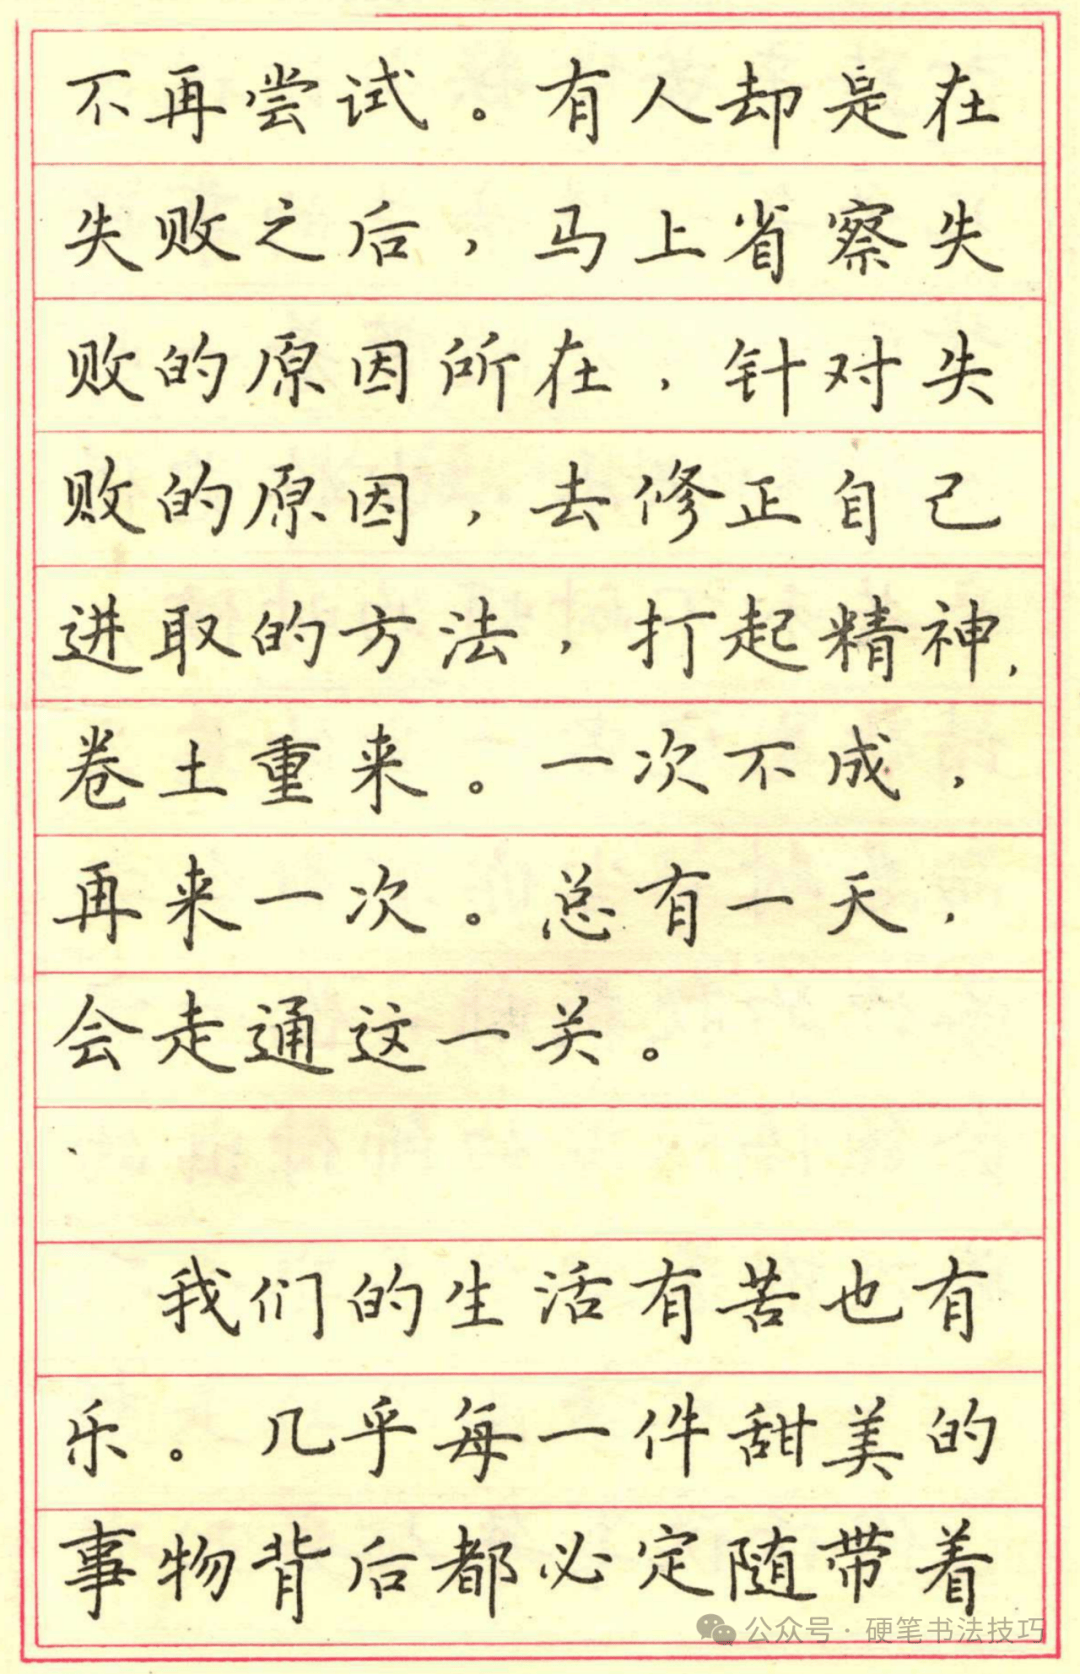 不再尝试。有人却是在
失败之后，马上省察失
败的原因所在，针对失
败的原因，去修正自己
进取的方法，打起精神，
卷土重来。一次不成，
再来一次。总有一天，
会走通这一关。
我们的生活有苦也有
乐。几乎每一件甜美的
事物背后都必定随带着
公众号·硬笔书法技巧